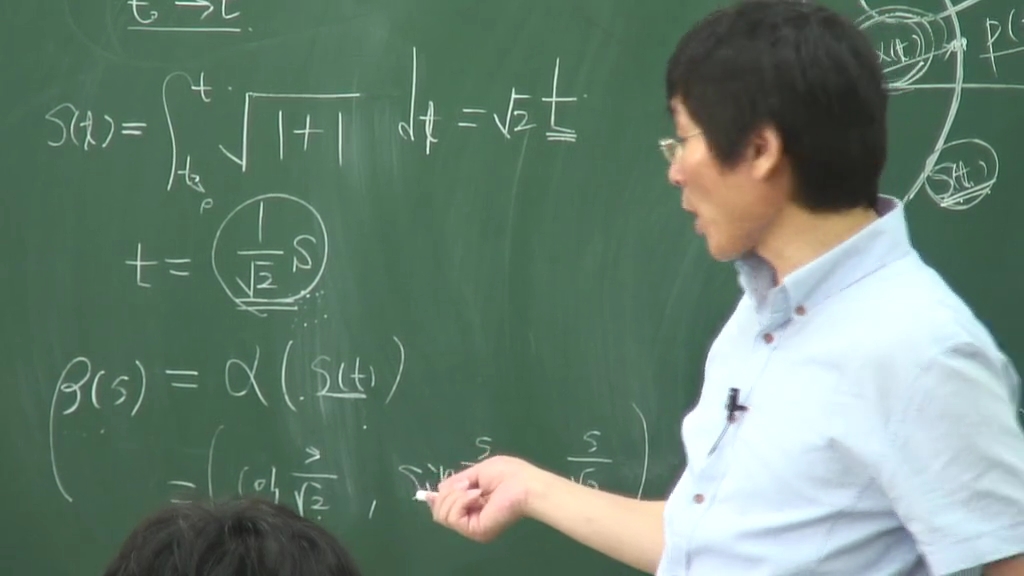 t₀ → t
S(t) = ∫_{t₀}^{t} √(1+1) dt = √2 t
t = 1/√2 S
β(s) = α(S(t))
= (cos s/√2, sin s, s/√2)
α(t)
p(
S(t)